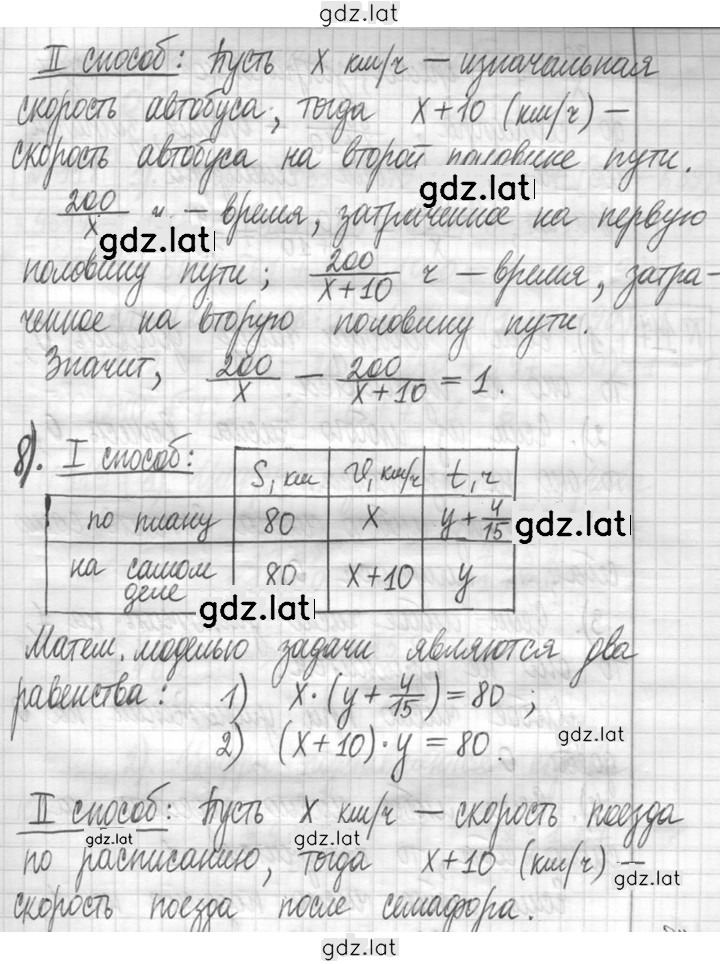 gdz.lat
II способ: Пусть x км/ч — изначальная
скорость автобуса, тогда x+10 (км/ч) —
скорость автобуса на второй половине пути.
gdz.lat
200/x ч — время, затраченное на первую
gdz.lat
половину пути; 200/(x+10) ч — время, затра-
ченное на вторую половину пути.
Значит, 200/x — 200/(x+10) = 1.
8). I способ:
S, км v, км/ч t, ч
по плану 80 x y + 4/15
gdz.lat
на самом деле 80 x+10 y
gdz.lat
Матем. моделью задачи являются два
равенства: 1) x·(y + 4/15) = 80;
2) (x+10)·y = 80.
gdz.lat
II способ: Пусть x км/ч — скорость поезда
gdz.lat gdz.lat
по расписанию, тогда x+10 (км/ч) —
gdz.lat
скорость поезда после семафора.
gdz.lat